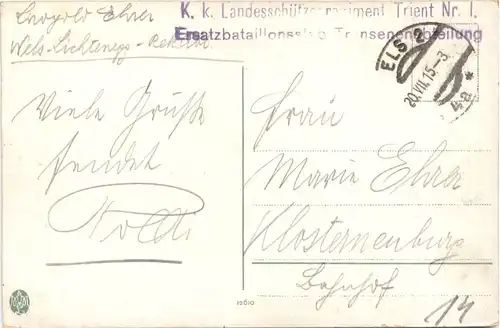 Leopold Ehrer
Wels-Lichtenegg-
K. k. Landesschützenregiment Trient Nr. I.
Ersatzbataillonsstab Transenenabteilung
WELS 2
20.VII.15.-3
4a*
Viele Grüße
sendet
Poldi
Frau
Marie Ehrer
Klosterneuburg
Bahnhof
14